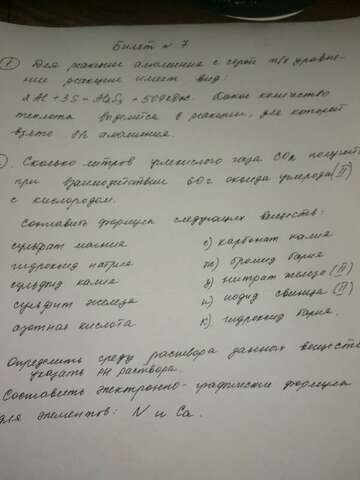 Билет № 7
① Для реакции алюминия с серой т/х уравне-
ние реакции имеет вид:
2Al + 3S = Al₂S₃ + 509кДж. Какое количество
теплоты выделится в реакции, для которой
взято алюминия.
Сколько литров углекислого газа CO₂ получит
при взаимодействии 60г оксида углерода (II)
с кислородом.
Составить формулы следующих веществ:
сульфат магния е) карбонат калия
гидроксид натрия ж) бромид бария
сульфид калия з) нитрат железа (II)
сульфит железа и) иодид свинца (II)
азотная кислота к) гидроксид бария.
Определить среду раствора данных веществ
указать pH раствора.
Составить электронно-графические формулы
для элементов: N и Ca.